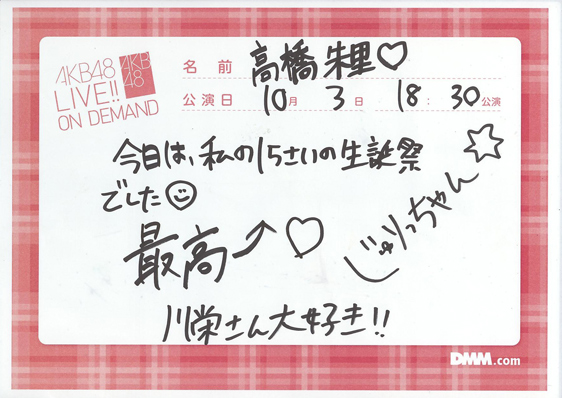 AKB48
LIVE!!
ON DEMAND
AKB
48
名前 高橋朱里♡
公演日 10月 3日 18:30公演
今日は、私の15さいの生誕祭
でした☺
最高↗♡
じゅりっちゃん☆
川栄さん大好き!!
DMM.com